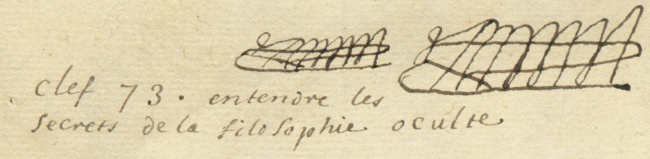 clef 73. entendre les
secrets de la filosophie oculte